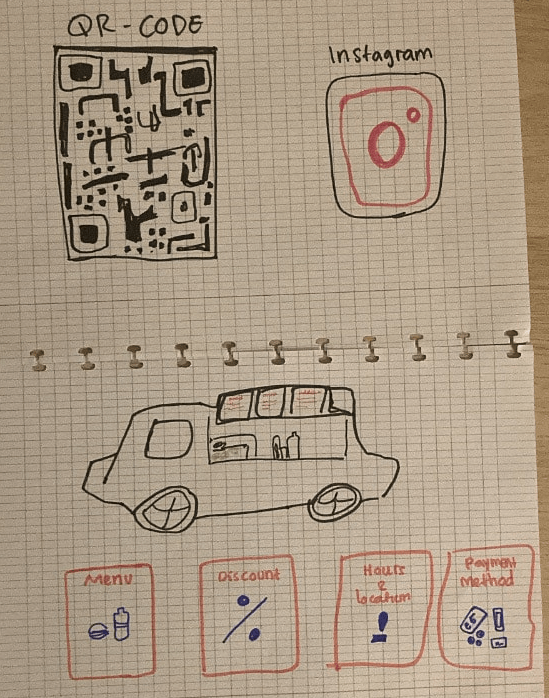 QR-CODE
Instagram
Menu
Discount
Hours
&
location
Payment
method